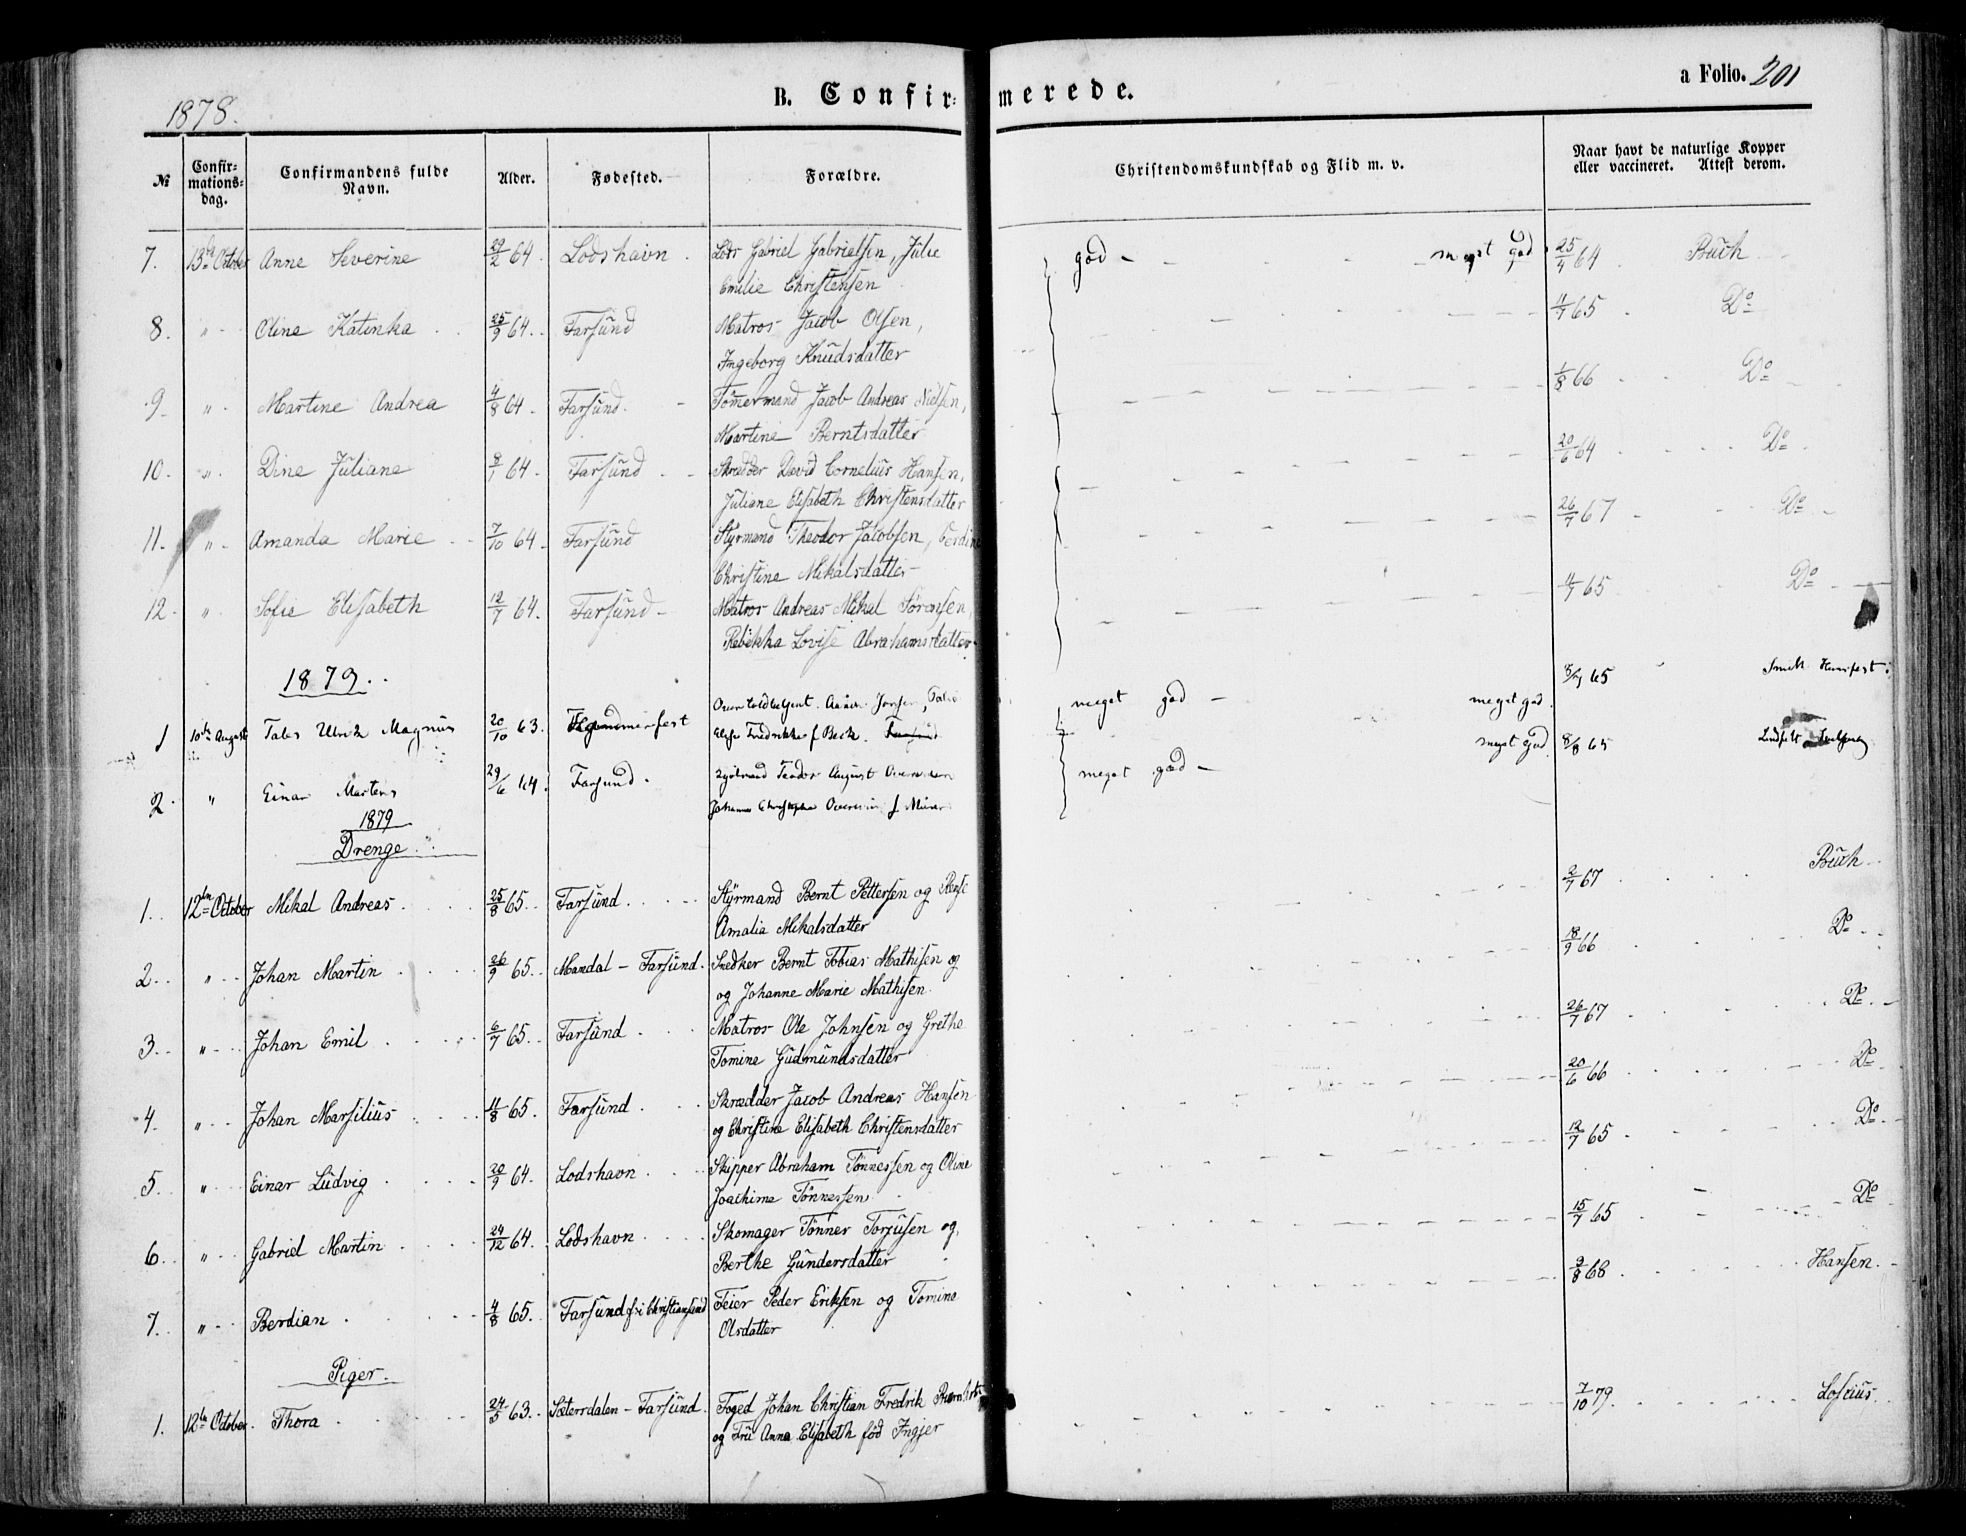 1878.
B. Confirmerede.
a Folio. 201
№ Confirmations-dag. Confirmandens fulde Navn. Alder. Fødested. Forældre. Christendomskundskab og Flid m. v. Naar havt de naturlige Kopper eller vaccineret. Attest derom.
7. 13de October Anne Severine 29/2 64. Lodshavn. Lods Gabriel Gabrielsen, Julie god meget god 25/4 64 Buch
Emilie Christensen
8. " Oline Katinka 25/9 64. Farsund Matros Jacob Olsen, 4/7 65 Do
Ingeborg Knudsdatter
9. " Martine Andrea 4/8 64. Farsund. Tømermand Jacob Andreas Nielsen, 1/8 66 Do
Martine Berntsdatter
10. " Dine Juliane 8/1 64. Farsund Skrædder David Cornelius Hansen, 20/6 64 Do
Juliane Elisabeth Christensdatter
11. " Amanda Marie 7/10 64. Farsund Styrmand Theodor Jacobsen, 26/7 67 Do
Christine Mikalsdatter
12. " Sofie Elisabeth 12/7 64. Farsund Matros Andreas Mikal Sørensen, 4/7 65 Do
Rebekka Lovise Abrahamsdatter
1879.
1 10de August Magnus 20/10 63. meget god meget god. 65
Fredrikke f. Beck.
2. " Einar Martens 29/6 64. Farsund. August meget god meget god 8/8 65
Johanne
1879
Drenge.
1. 12te October Mikal Andreas 25/8 65. Farsund. Styrmand Bernt Pettersen og 2/7 67 Buch
Amalia Mikalsdatter
2. " Johan Martin 26/9 65. Mandal - Farsund. Snedker Bernt Tobias Mathisen og 18/9 66 Do
og Johanne Marie Mathisen.
3. " Johan Emil 6/7 65. Farsund. Matros Ole Johnsen og Grethe 26/7 67 Do
Tomine Gudmundsdatter
4. " Johan Marsilius 11/8 65. Farsund. Skrædder Jacob Andreas Hansen 20/6 66 Do
og Christine Elisabeth Christensdatter
5. " Einar Ludvig 20/9 64. Lodshavn. Skipper Abraham Tønnessen og Oline 12/7 65 Do
Joachime Tønnessen
6. " Gabriel Martin 24/12 64. Lodshavn. Skomager Tønnes Torjusen og 15/7 65 Do
Berthe Gundersdatter
7. " Berdian 4/8 65. Farsund Christiansand Feier Peder Eriksen og Tomine 9/8 68 Hansen.
Olsdatter
Piger.
1. 12te October. Thora 24/5 63. Sæterrdalen - Farsund. Foged Johan Christian Fredrik 7/10 79.
og Frü Anna Elisabeth fød Ingjer